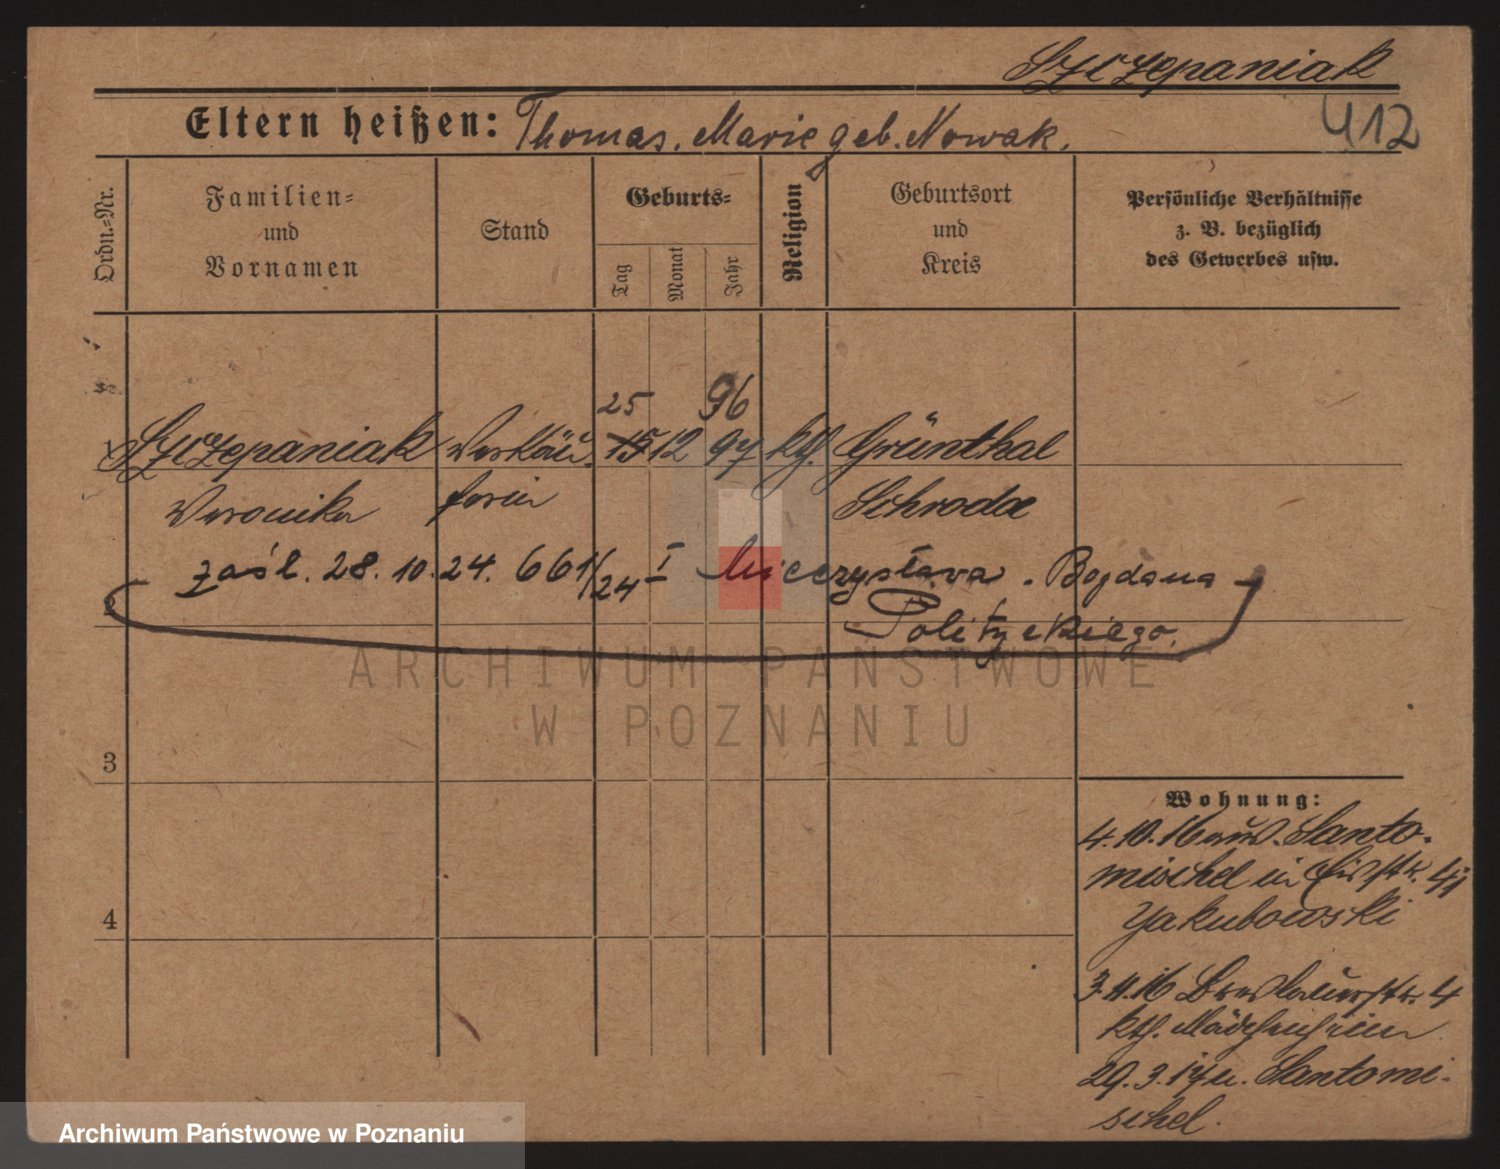 Szczepaniak
Eltern heißen: Thomas. Marie geb. Nowak.
412
Ordn.-Nr.
Familien-
und
Vornamen
Stand
Geburts-
Tag
Monat
Jahr
Religion
Geburtsort
und
Kreis
Persönliche Verhältnisse
z. B. bezüglich
des Gewerbes usw.
25 96
1 Szczepaniak Verkäu- 15 12 97 kth. Grünthal
Veronika ferin Schroda
zaśl. 28.10.24. 661/24 I Mieczysława. Bogdana
2 Polityckiego.
ARCHIWUM PAŃSTWOWE
W POZNANIU
3
4
Wohnung:
4.10.16 aus. Santo-
mischel in 4
Jakubowski
3.11.16 Breslauerstr. 4
kth. Mädchenheim
29.3.17 n. Santomi-
schel.
Archiwum Państwowe w Poznaniu